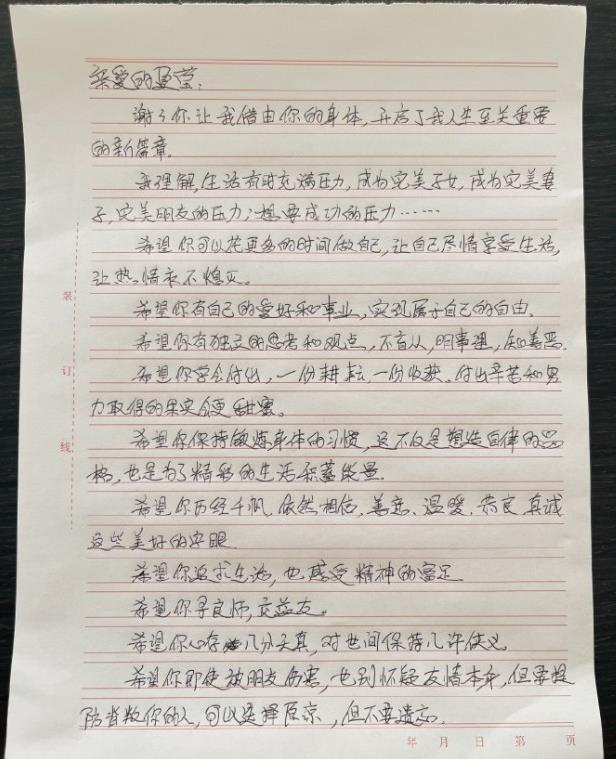 亲爱的盈莹：
谢谢你让我借由你的身体，开启了我人生至关重要
的新篇章。
我理解，生活有时充满压力，成为完美子女，成为完美妻
子，完美朋友的压力；想要成功的压力……
希望你可以花更多的时间做自己，让自己尽情享受生活，
让热情永不熄灭。
希望你有自己的爱好和事业，实现属于自己的自由。
希望你有独立的思考和观点，不盲从，明事理，知善恶。
希望你学会付出，一份耕耘，一份收获。付出辛苦和努
力取得的果实会更甜蜜。
希望你保持锻炼身体的习惯，这不仅是塑造自律的品
格，也是为了精彩的生活积蓄能量。
希望你历经千帆，依然相信，善意、温暖、恭良、真诚
这些美好的字眼
希望你追求生活，也感受精神的富足
希望你寻良师，交益友。
希望你心存几分天真，对世间保持几许侠义
希望你即使被朋友伤害，也别怀疑友情本身，但要提
防背叛你的人，可以选择原谅，但不要遗忘。
装
订
线
年 月 日 第 页